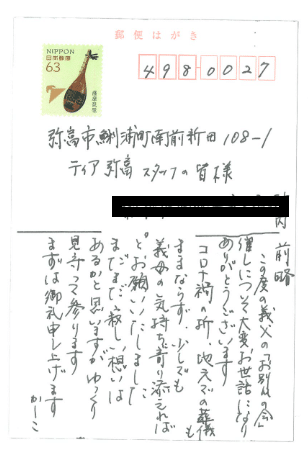 郵便はがき
NIPPON
日本郵便
63
498-0027
弥富市鯏浦町南前新田108-1
ティア弥富 スタッフの皆様
前略
この度の義父の「お別れの会」
催しにつき大変お世話になり
ありがとうございます
コロナ禍の折、地元での葬儀も
ままならず、少しでも
義母の気持に寄り添えれば
とお願いいたしました
まだまだ寂しい想いは
あるかと思いますがゆっくり
見守って参ります
まずは御礼申し上げます
かしこ